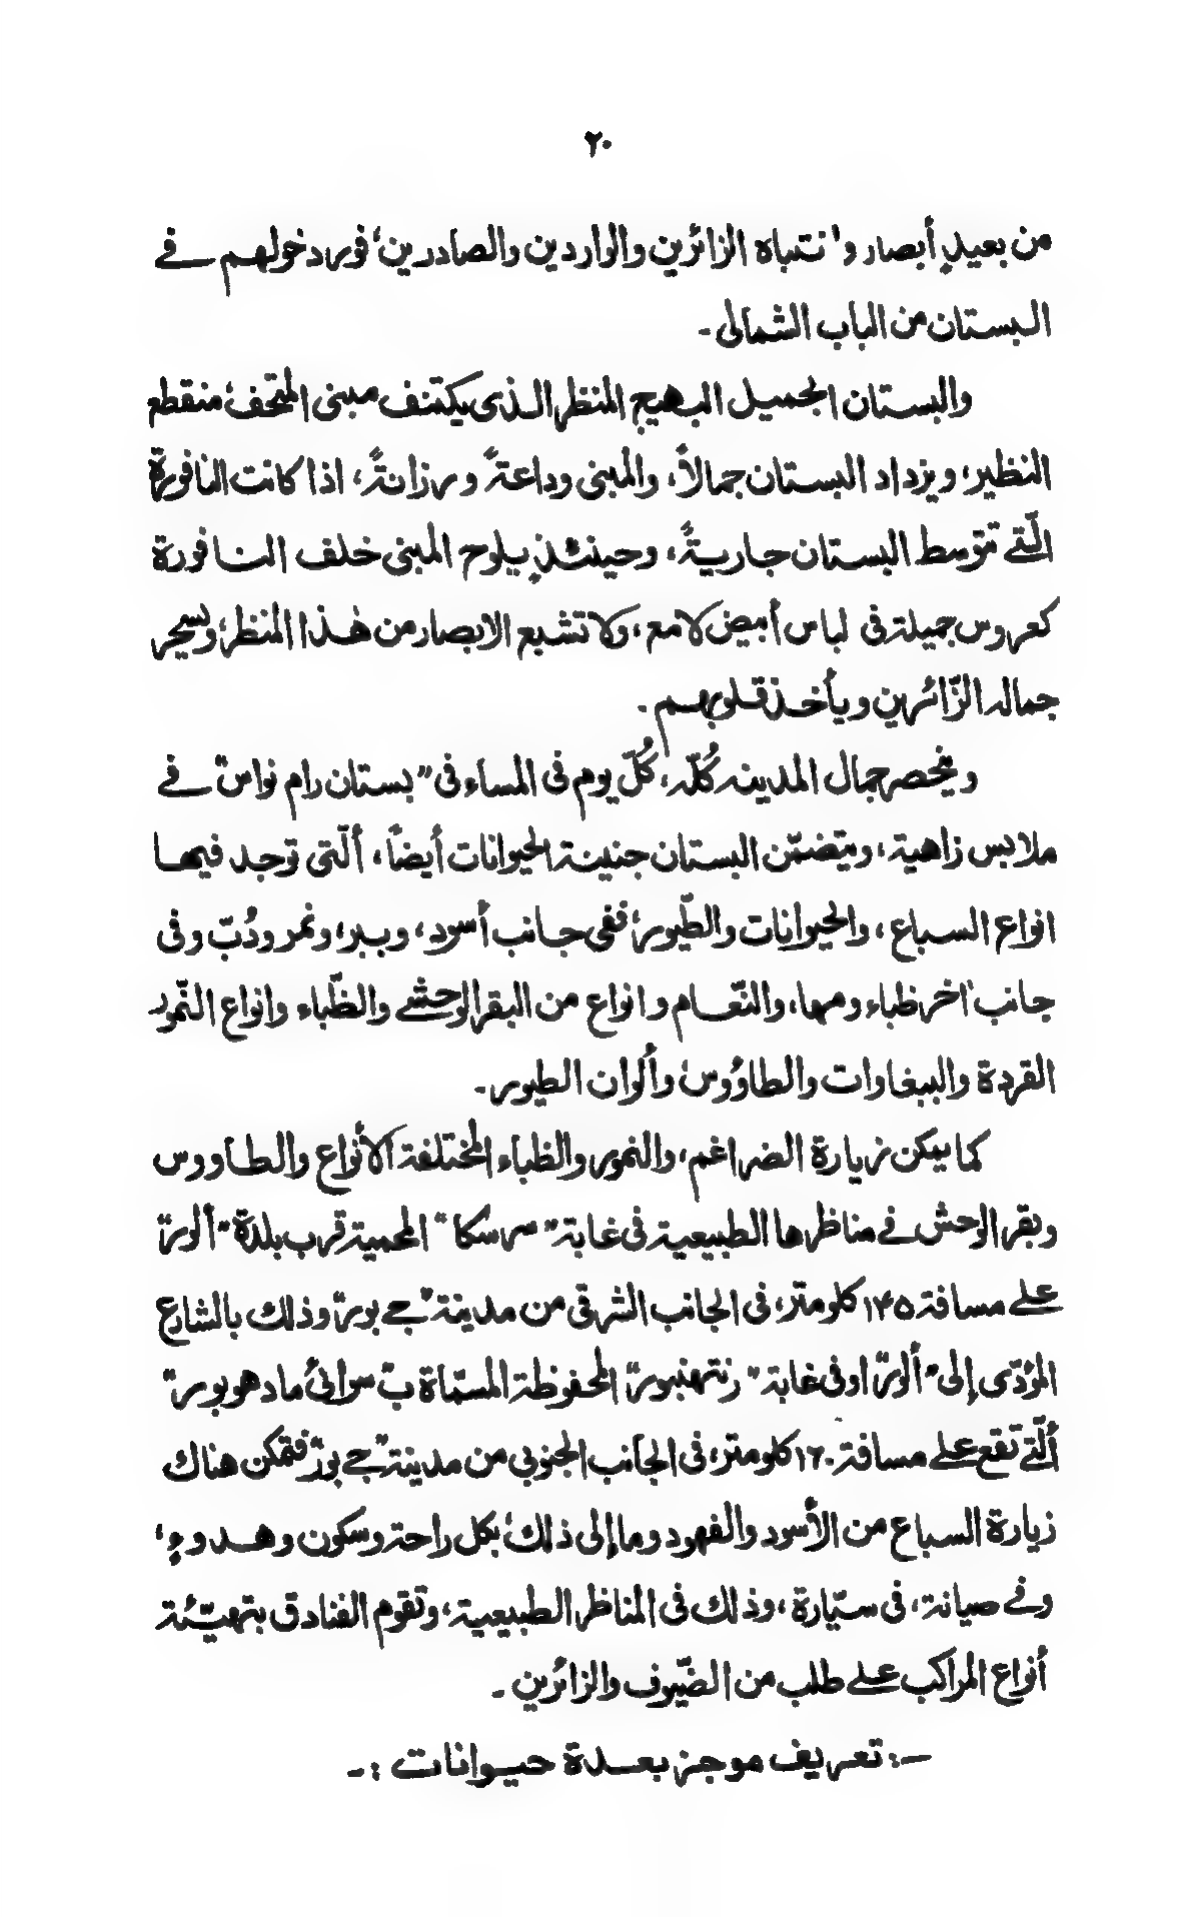 ٢٠
من بعيدٍ أبصار وانتباه الزائرين والواردين والصادرين، فور دخولهم في
البستان من الباب الشمالى -
والبستان الجميل البهيج المنظر الذى يكتنف مبنى المتحف، منقطع
النظير، ويزداد البستان جمالاً، والمبنى وداعةً ورزانةً، اذا كانت النافورة
الّتي تتوسط البستان جاريةً، وحينئذٍ يلوح المبنى خلف النافورة
كعروس جميلة فى لباس أبيض لامع، ولا تشبع الابصار من هٰذا المنظر، ويسحر
جماله الزّائرين ويأخذ قلوبهم -
وينحصر جمال المدينه كُلّه، كُلّ يوم فى المساء فى " بستان رام نواس" في
ملابس زاهية، ويتضمّن البستان جنينة الحيوانات أيضاً، ألّتى توجد فيها
انواع السباع، والحيوانات والطّيور، ففى جانب أسود، وببر، ونمر ودُبّ وفى
جانب اخر ظباء ومها، والنّعام وانواع من البقر الوحشي والظّباء وانواع النّمور
القردة والببغاوات والطاوُوس، وألوان الطيور -
كما يمكن زيارة الضراغم، والنمور والظباء المختلفة الأنواع والطاووس
وبقر الوحش في مناظرها الطبيعية فى غابة " سرسكا " المحمية قرب بلدة "ألور"
على مسافة ١٤٥ كلومتر، فى الجانب الشرقى من مدينة "جے بور" وذلك بالشارع
المؤدّى إلى "ألور" او فى غابة " رنتهنبور" المحفوظة المسمّاة ب "سوائى مادهوبور"
ألّتي تقع على مسافة ١٦٠ كلومتر، فى الجانب الجنوبي من مدينة "جے بور" فتمكن هناك
زيارة السباع من الأسود والفهود وما إلى ذلك، بكل راحة وسكون وهدوءٍ،
وفي صيانة، فى سيّارة، وذلك فى المناظر الطبيعية، وتقوم الفنادق بتهيئة
أنواع المراكب على طلب من الضّيوف والزائرين -
-: تعريف موجز بعدة حيوانات :-